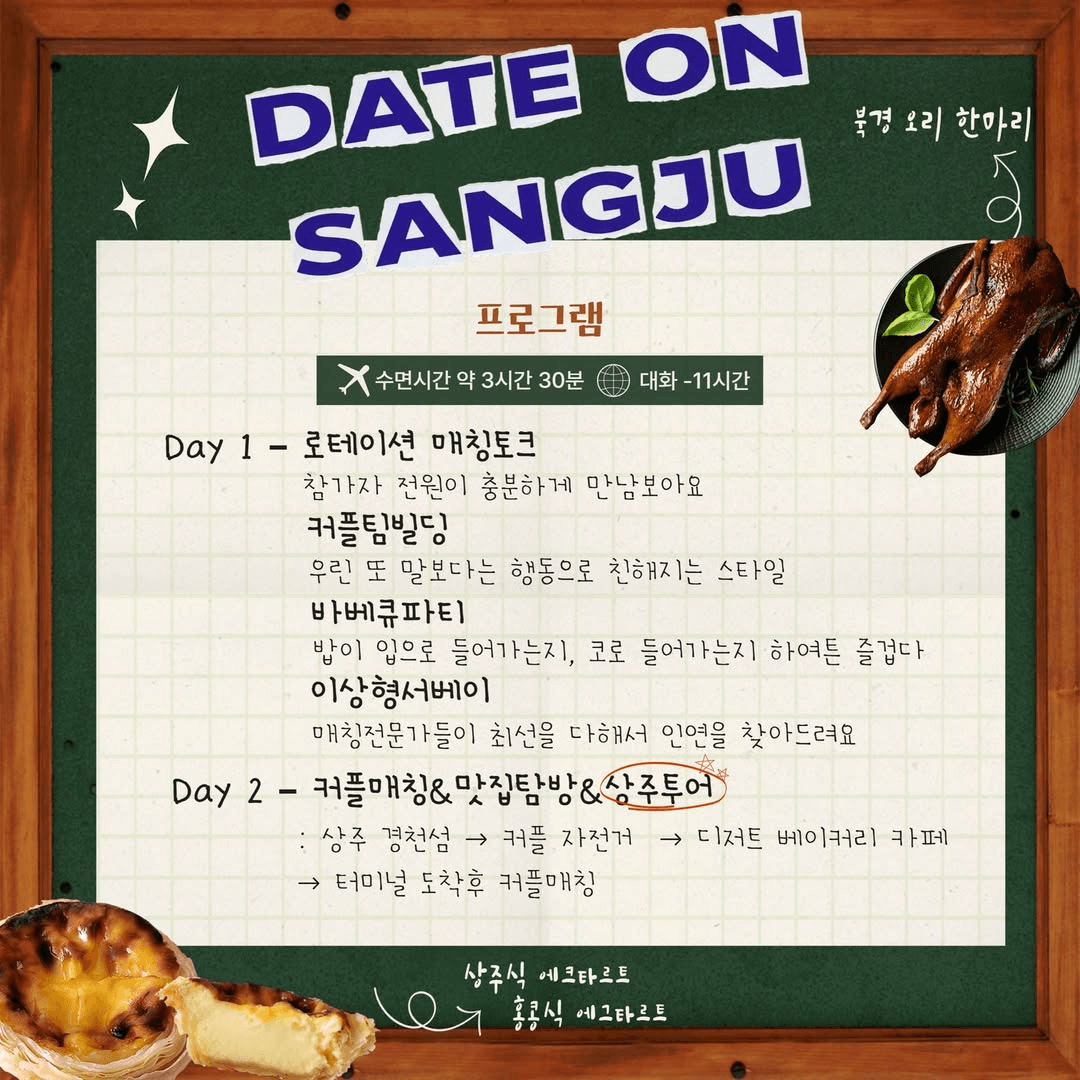 DATE ON
SANGJU
북경 오리 한마리
프로그램
수면시간 약 3시간 30분 대화 -11시간
Day 1 - 로테이션 매칭토크
참가자 전원이 충분하게 만남보아요
커플팀빌딩
우린 또 말보다는 행동으로 친해지는 스타일
바베큐파티
밥이 입으로 들어가는지, 코로 들어가는지 하여튼 즐겁다
이상형서베이
매칭전문가들이 최선을 다해서 인연을 찾아드려요
Day 2 - 커플매칭&맛집탐방&상주투어
: 상주 경천섬 → 커플 자전거 → 디저트 베이커리 카페
→ 터미널 도착후 커플매칭
상주식 에크타르트
홍콩식 에그타르트